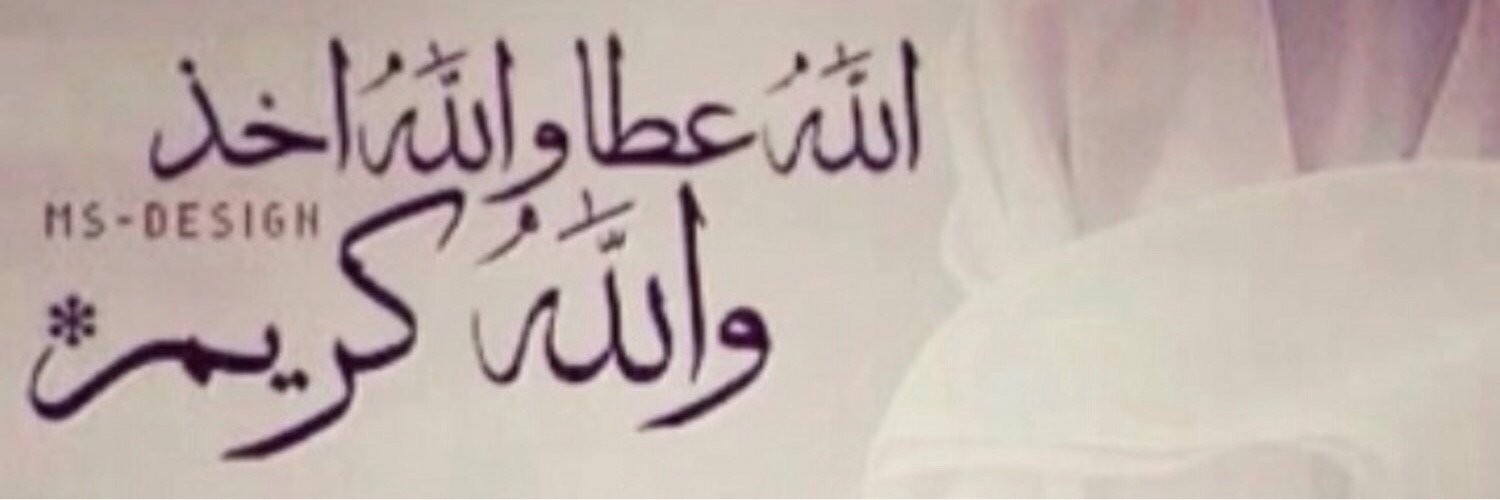 اللهُ عطا واللهُ اخذ
MS-DESIGN
واللهُ كريم*